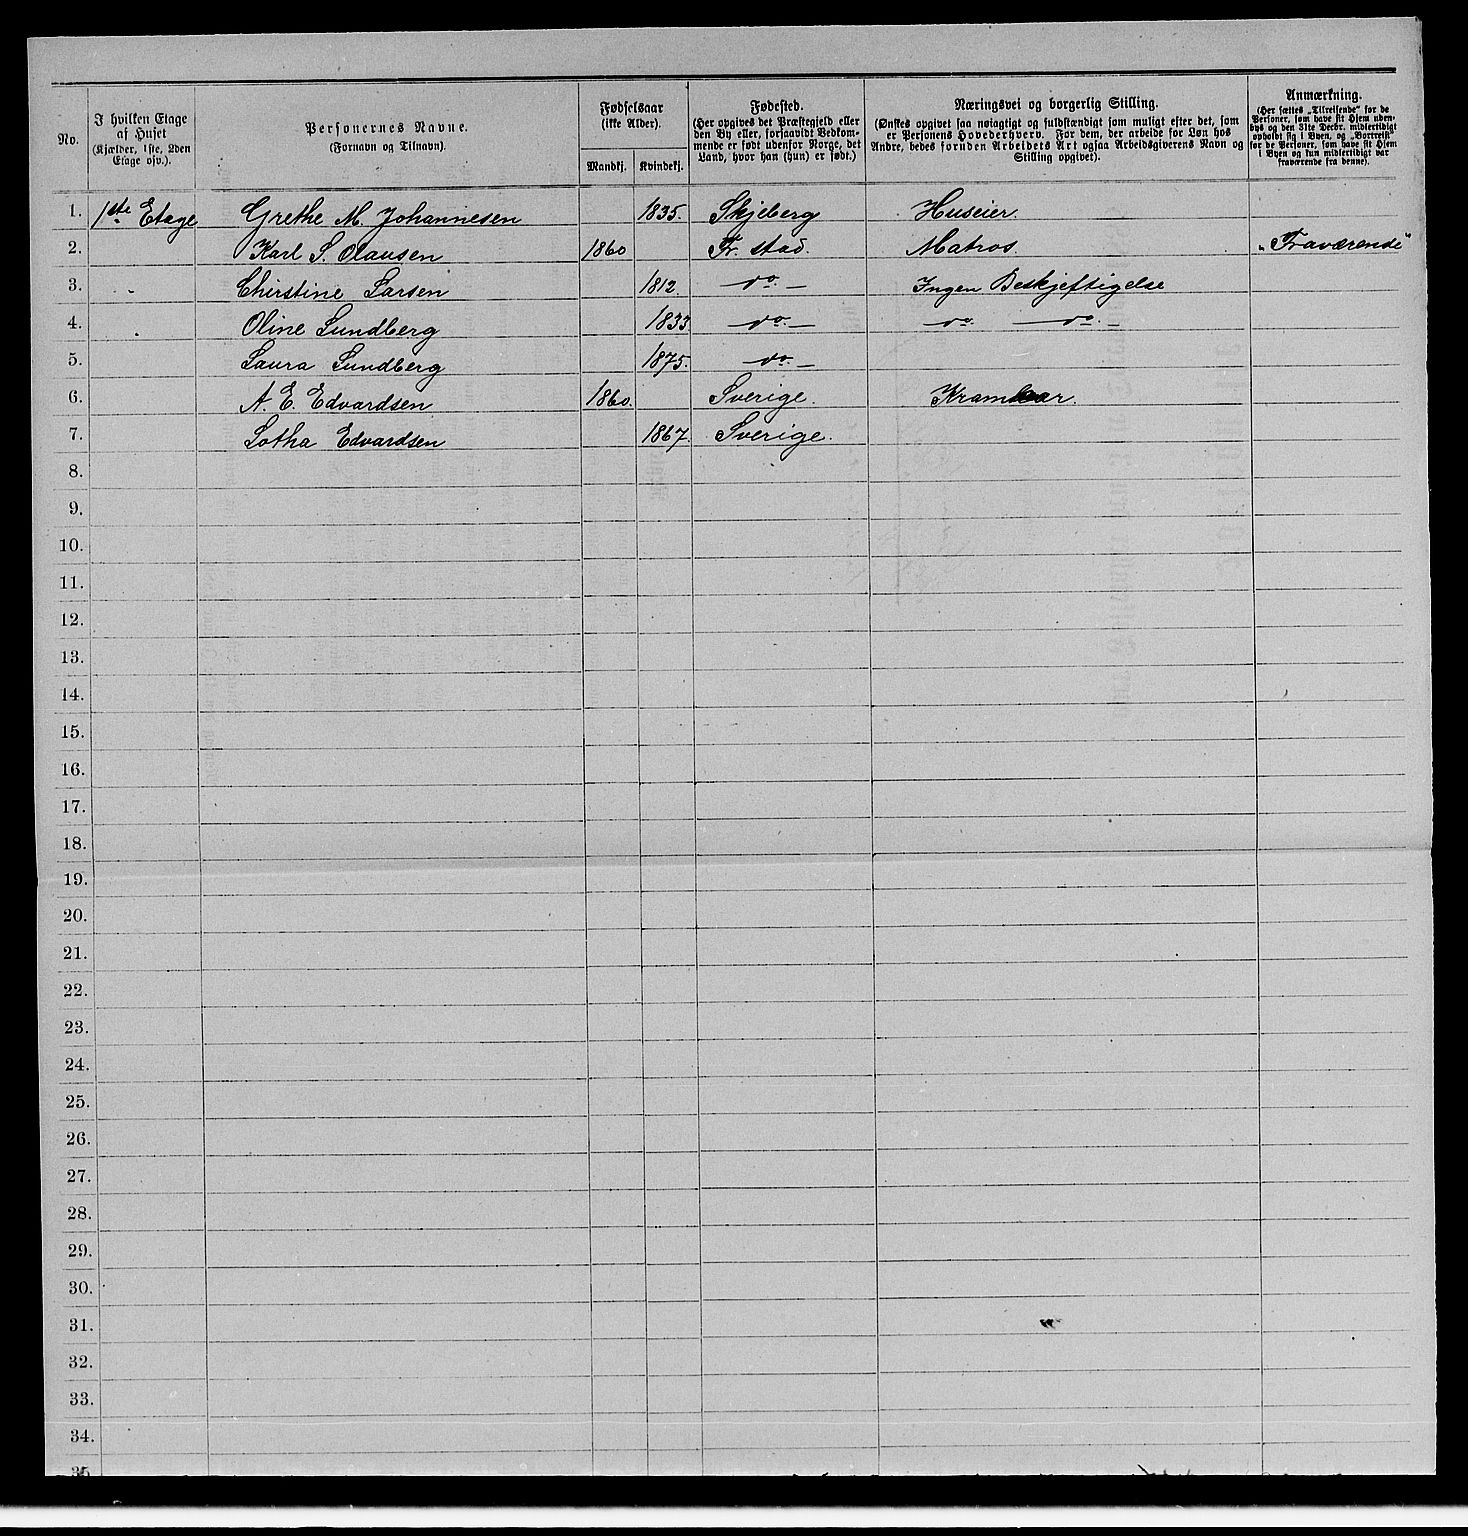 No.
I hvilken Etage
af Huset
(Kjælder, 1ste, 2den
Etage osv.).
Personernes Navne.
(Fornavn og Tilnavn).
Fødselsaar
(ikke Alder).
Mandkj. Kvindekj.
Fødested.
(Her opgives det Præstegjeld eller
den By eller, forsaavidt Vedkom-
mende er født udenfor Norge, det
Land, hvor han (hun) er født.)
Næringsvei og borgerlig Stilling.
(Ønskes opgivet saa nøiagtigt og fuldstændigt som muligt efter det, som
er Personens Hovederhverv. For dem, der arbeide for Løn hos
Andre, bedes foruden Arbeidets Art ogsaa Arbeidsgiverens Navn og
Stilling opgivet).
Anmærkning.
(Her sættes „Tilreisende“ for de
Personer, som have sit Hjem uden-
bys og den 31te Decbr. midlertidigt
opholdt sig i Byen, og „Bortreist“
for de Personer, som have sit Hjem
i Byen og kun midlertidigt var
fraværende fra denne).
1. 1ste Etage Grethe M. Johannesen 1835. Skjeberg Huseier.
2. Karl S. Olausen 1860 Fr. stad. Matros. „Fraværende“
3. Chirstine Larsen 1812. do. Ingen Beskjeftigelse
4. Oline Lundberg 1833 do. do. do.
5. Laura Lundberg 1875. do.
6. A. E. Edvardsen 1860. Sverige. Kramkar.
7. Lotha Edvardsen 1867. Sverige.
8.
9.
10.
11.
12.
13.
14.
15.
16.
17.
18.
19.
20.
21.
22.
23.
24.
25.
26.
27.
28.
29.
30.
31.
32.
33.
34.
35